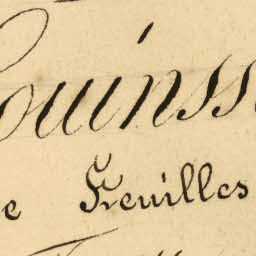 ouinss
e Feuilles